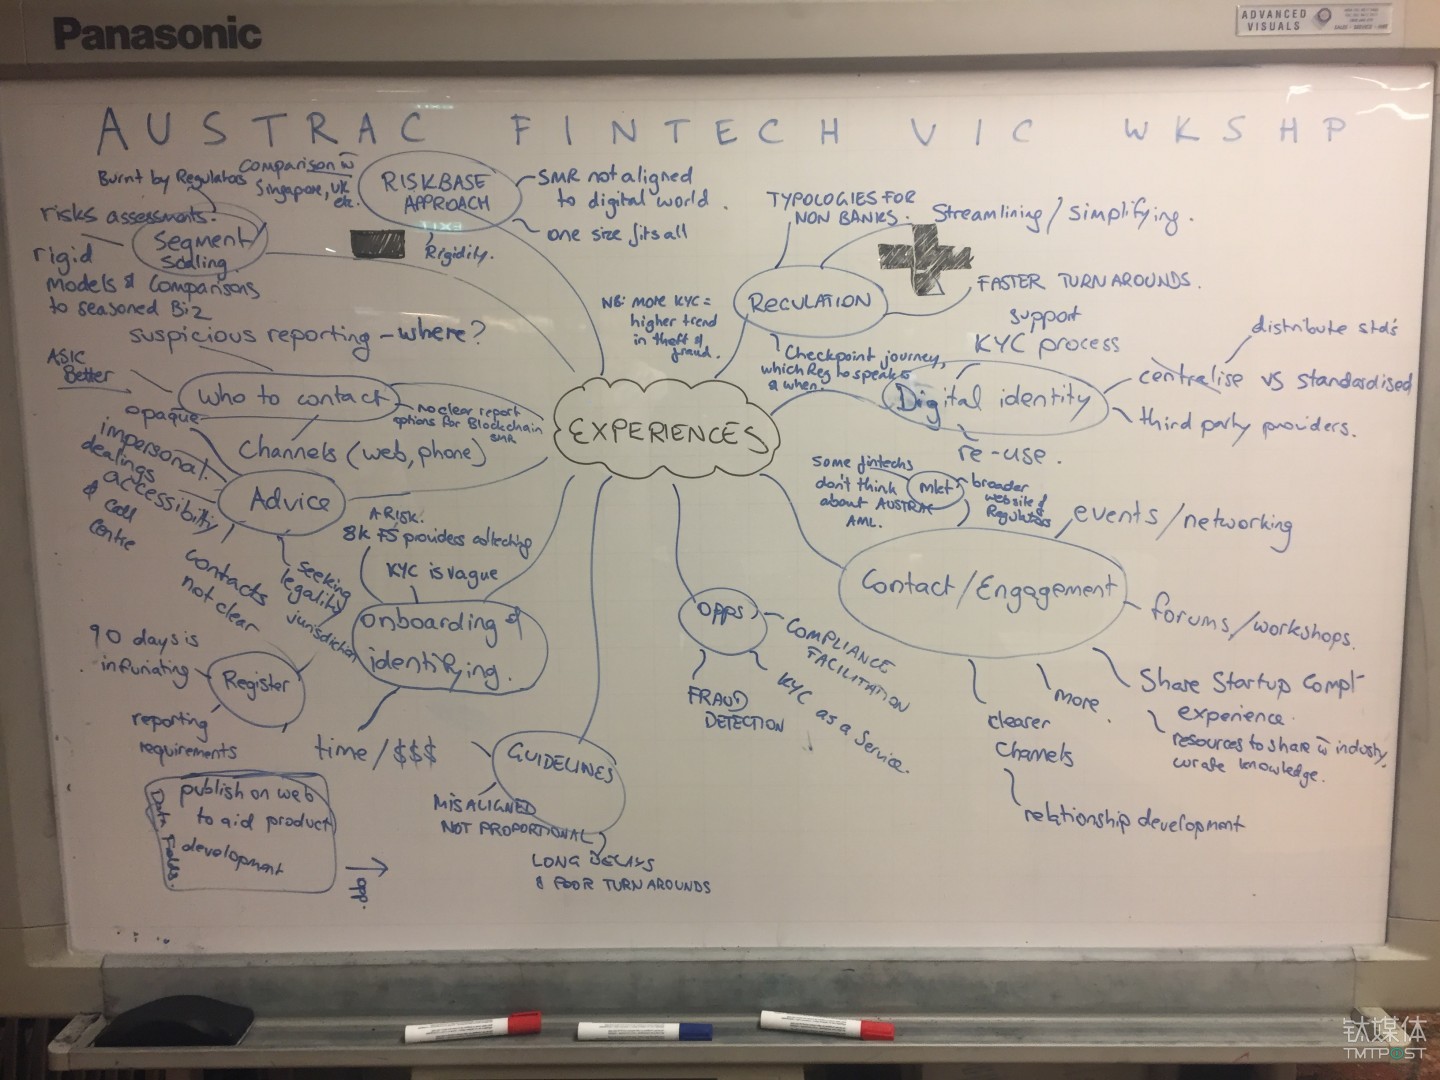 Panasonic
ADVANCED
VISUALS
AUSTRAC FINTECH VIC WKSHP
Burnt by Regulators
Comparison w̄
Singapore, UK
etc.
RISKBASE
APPROACH
SMR not aligned
to digital world.
one size fits all
Rigidity.
risks assessments.
Segment/
Scaling.
rigid
models & Comparisons
to seasoned Biz
suspicious reporting - where?
ASIC
Better
Who to contact
no clear report
options for Blockchain
SMR
Channels (web, phone)
opaque
impersonal.
dealings
accessibility
& call
centre
Advice
contacts
not clear
seeking
legality
jurisdiction
A RISK.
8k FS providers collecting
KYC is vague
onboarding &
identifying.
time / $$$
90 days is
infuriating
Register
reporting
requirements
Data Fields.
publish on web
to aid product
development
opp.
EXPERIENCES
GUIDELINES
MISALIGNED
NOT PROPORTIONAL
LONG DELAYS
& POOR TURNAROUNDS
TYPOLOGIES FOR
NON BANKS.
Streamlining / simplifying.
REGULATION
FASTER TURNAROUNDS.
NB: more KYC =
higher trend
in theft &
fraud.
Checkpoint journey,
which Reg to speak to
& when.
support
KYC process
Digital identity
distribute std's
centralise vs standardised
third party providers.
re-use.
Some fintechs
don't think
about AUSTRAC
AML.
mkt
broader
website &
Regulators
events / networking
Contact / Engagement
forums / workshops.
Share Startup Compl
experience.
resources to share w̄ industry.
curate knowledge.
more.
clearer
Channels
relationship development
opps
COMPLIANCE
FACILITATION
KYC as a Service.
FRAUD
DETECTION
钛媒体
TMTPOST